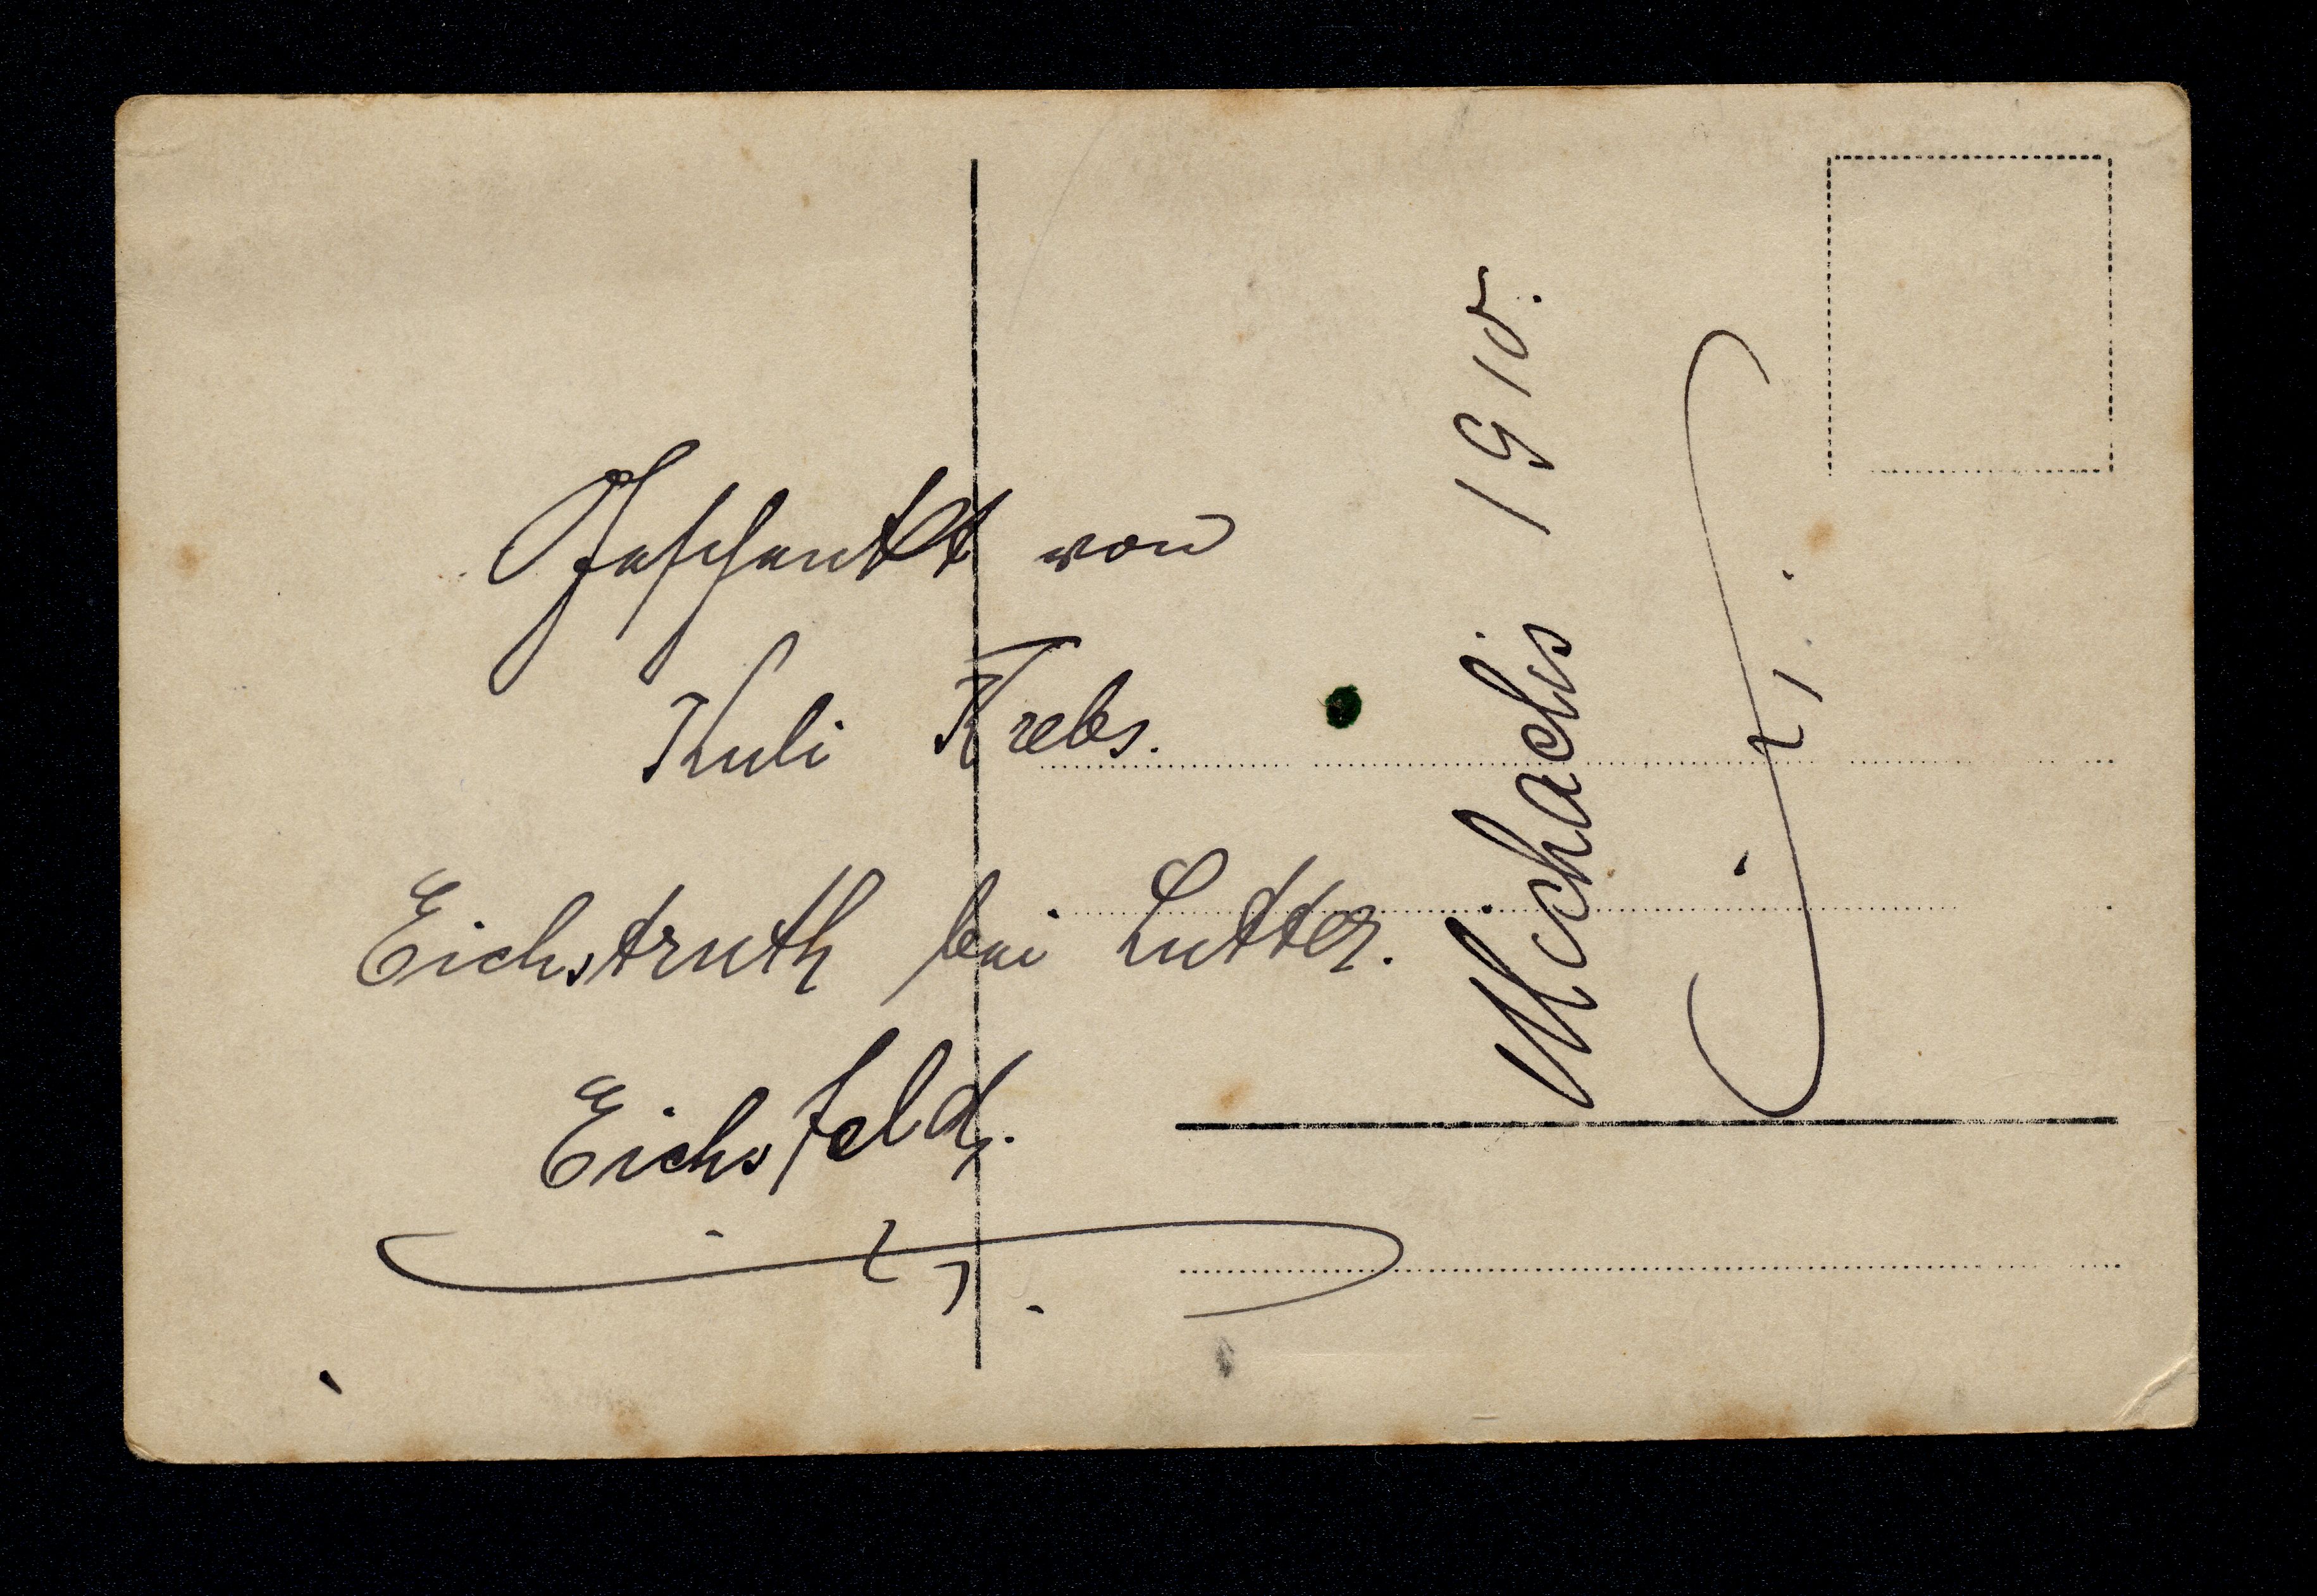 Geschenkt von
Kuli Krebs.
Eichstruth bei Lutter.
Eichsfeld.
Michaelis 1910.